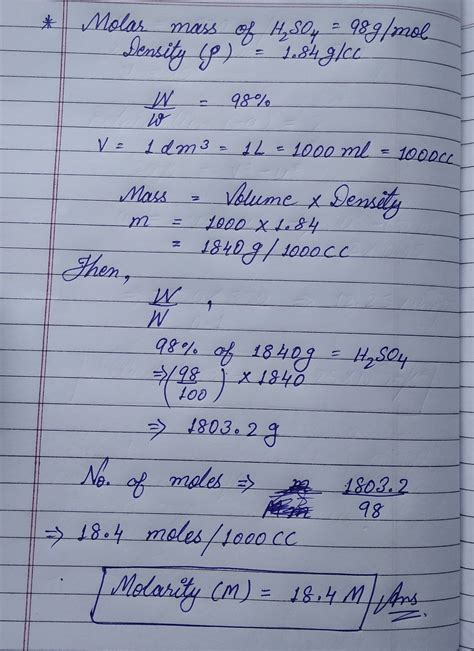 * Molar mass of H₂SO₄ = 98g/mol
Density (ρ) = 1.84g/cc
W/W = 98%
V = 1 dm³ = 1L = 1000 ml = 1000cc
Mass = Volume × Density
m = 1000 × 1.84
= 1840g/1000cc
Then,
W/W ,
98% of 1840g = H₂SO₄
⇒ (98/100) × 1840
⇒ 1803.2 g
No. of moles ⇒ 1803.2/98
⇒ 18.4 moles/1000cc
Molarity (M) = 18.4 M Ans